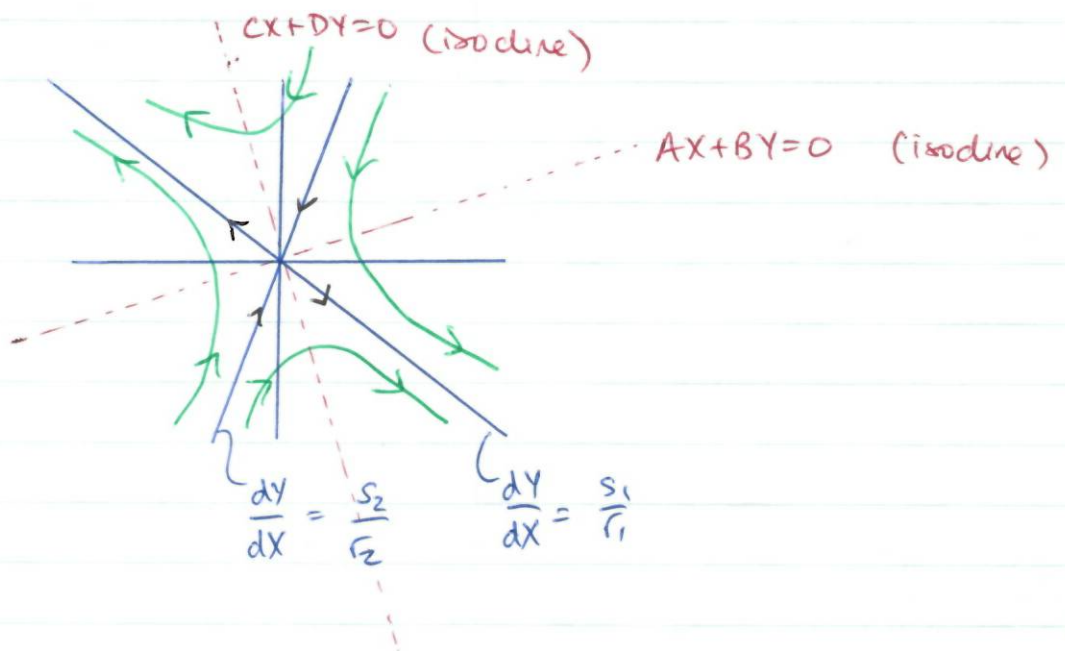 CX+DY=0 (isocline)
AX+BY=0 (isocline)
dY/dX = s₂/r₂
dY/dX = s₁/r₁